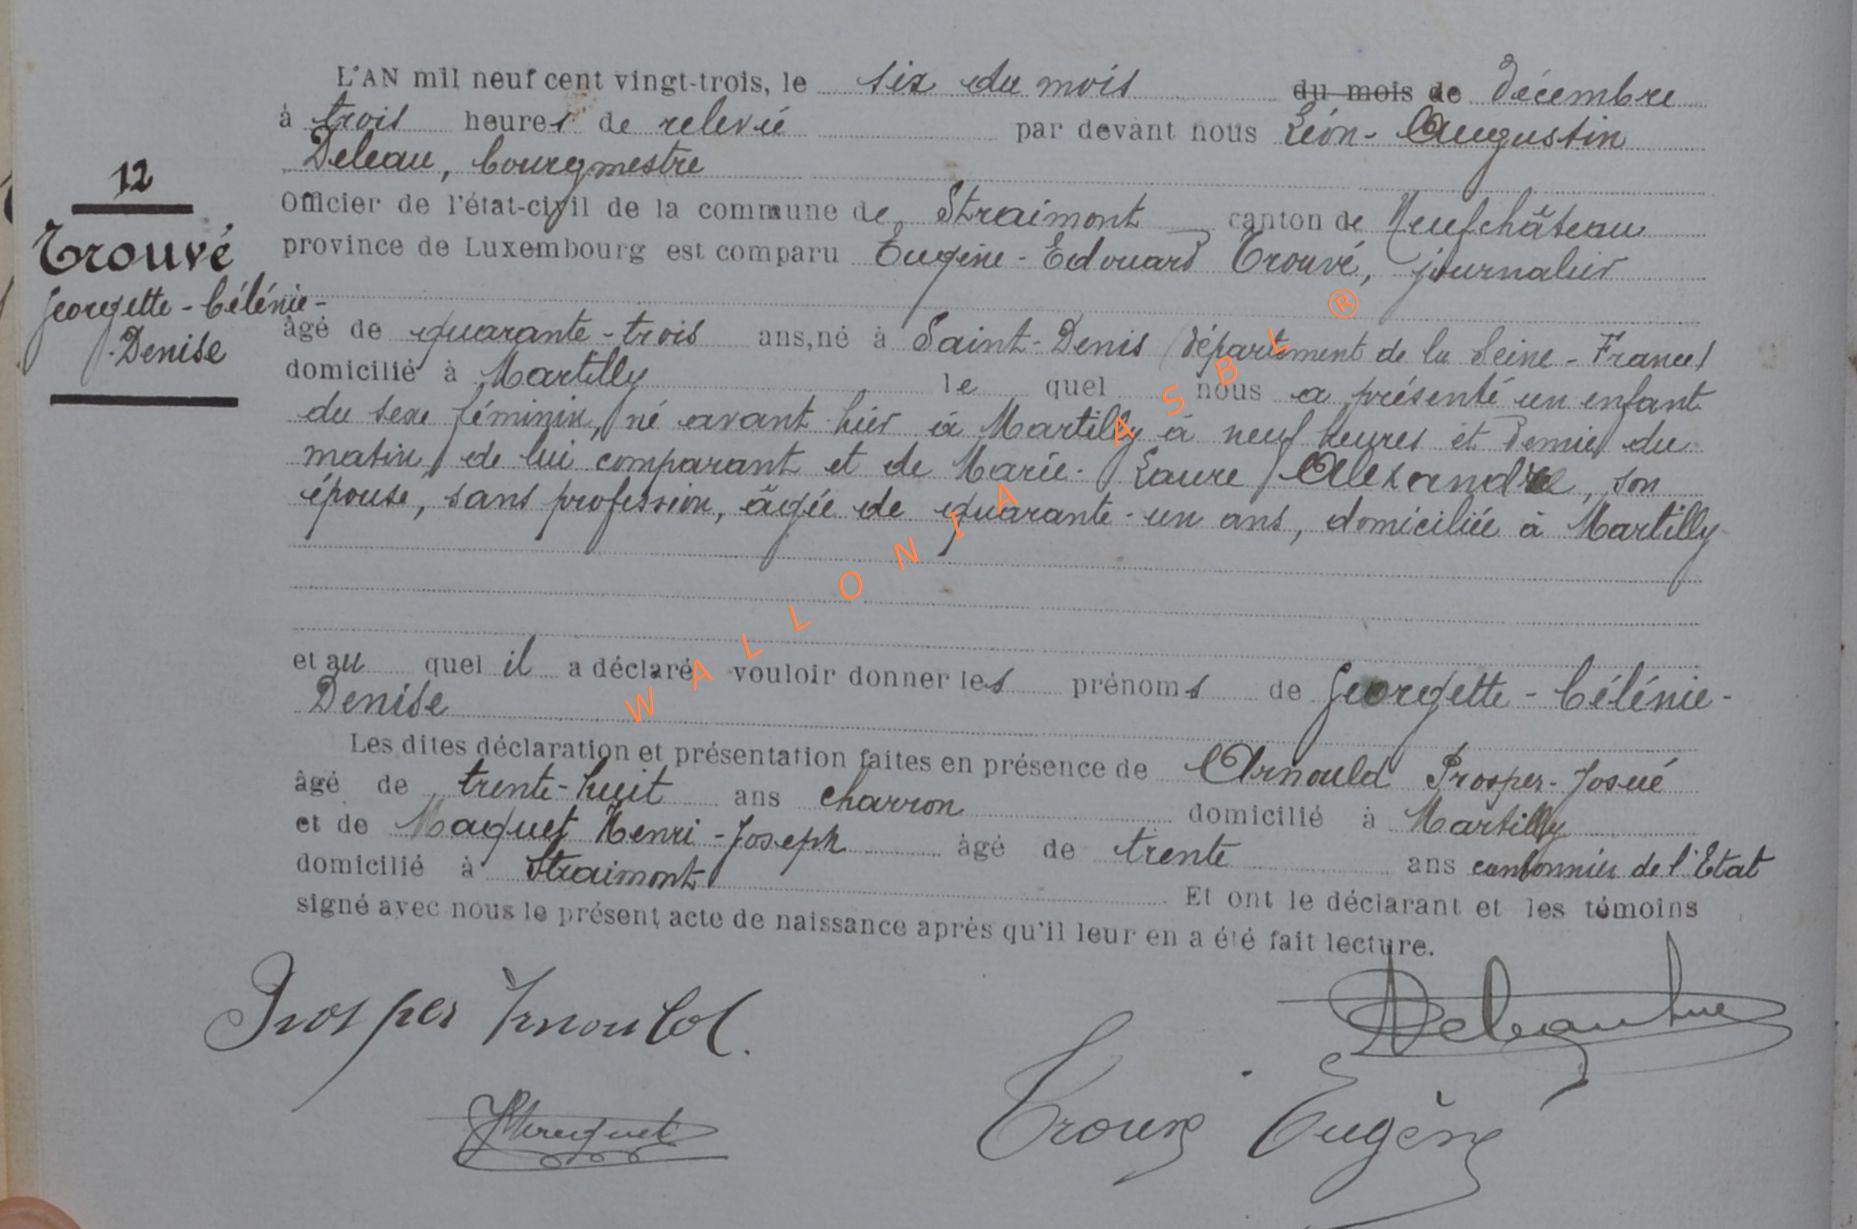 L'AN mil neuf cent vingt-trois, le six du mois du mois de décembre
à trois heures de relevée par devant nous Léon-Augustin
Deleau, bourgmestre
12
Officier de l'état-civil de la commune de Straimont canton de Neufchâteau
Trouvé
province de Luxembourg est comparu Eugène-Edouard Trouvé, journalier
Georgette-Célénie-
Denise
âgé de quarante-trois ans, né à Saint-Denis (département de la Seine-France)
domicilié à Martilly le quel nous a présenté un enfant
du sexe féminin, né avant hier à Martilly à neuf heures et demie du
matin, de lui comparant et de Marie-Laure Alexandre, son
épouse, sans profession, âgée de quarante-un ans, domiciliée à Martilly
et au quel il a déclaré vouloir donner les prénoms de Georgette-Célénie-
Denise
Les dites déclaration et présentation faites en présence de Arnould Prosper-Josué
âgé de trente-huit ans charron domicilié à Martilly
et de Maquet Henri-Joseph âgé de trente ans cantonnier de l'Etat
domicilié à Straimont Et ont le déclarant et les témoins
signé avec nous le présent acte de naissance après qu'il leur en a été fait lecture.
Prosper Arnould.
Trouvé Eugène
WALLONIA ASBL ®